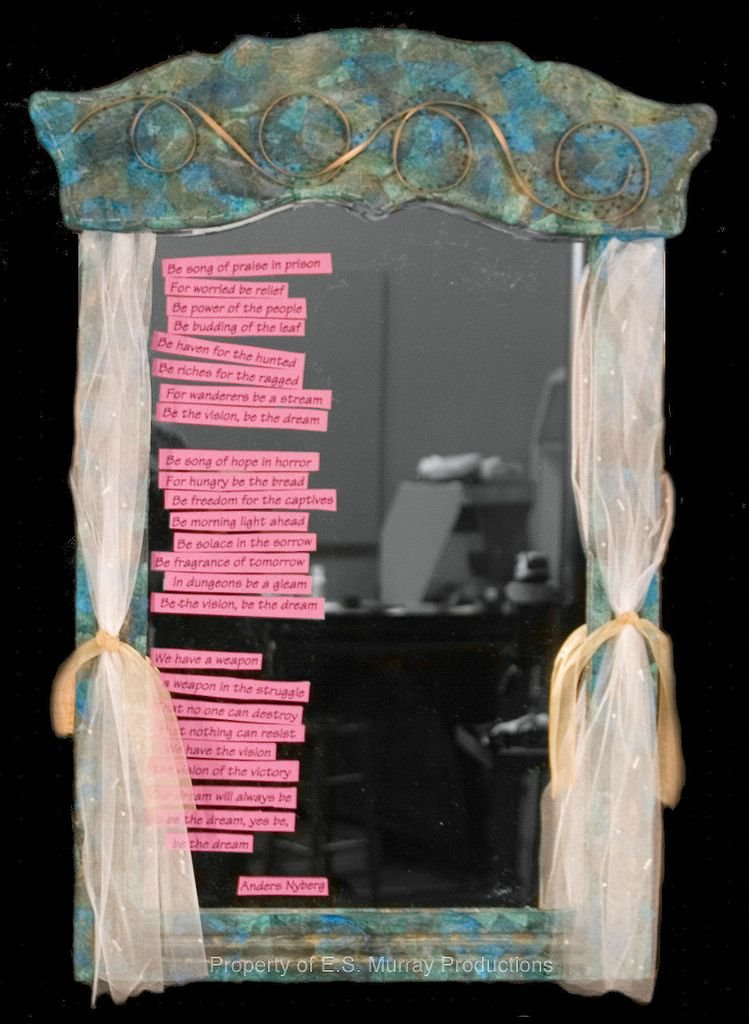 Be song of praise in prison
For worried be relief
Be power of the people
Be budding of the leaf
Be haven for the hunted
Be riches for the ragged
For wanderers be a stream
Be the vision, be the dream
Be song of hope in horror
For hungry be the bread
Be freedom for the captives
Be morning light ahead
Be solace in the sorrow
Be fragrance of tomorrow
In dungeons be a gleam
Be the vision, be the dream
We have a weapon
a weapon in the struggle
that no one can destroy
that nothing can resist
We have the vision
the vision of the victory
Our dream will always be
to be the dream, yes be,
be the dream
Anders Nyberg
Property of E.S. Murray Productions